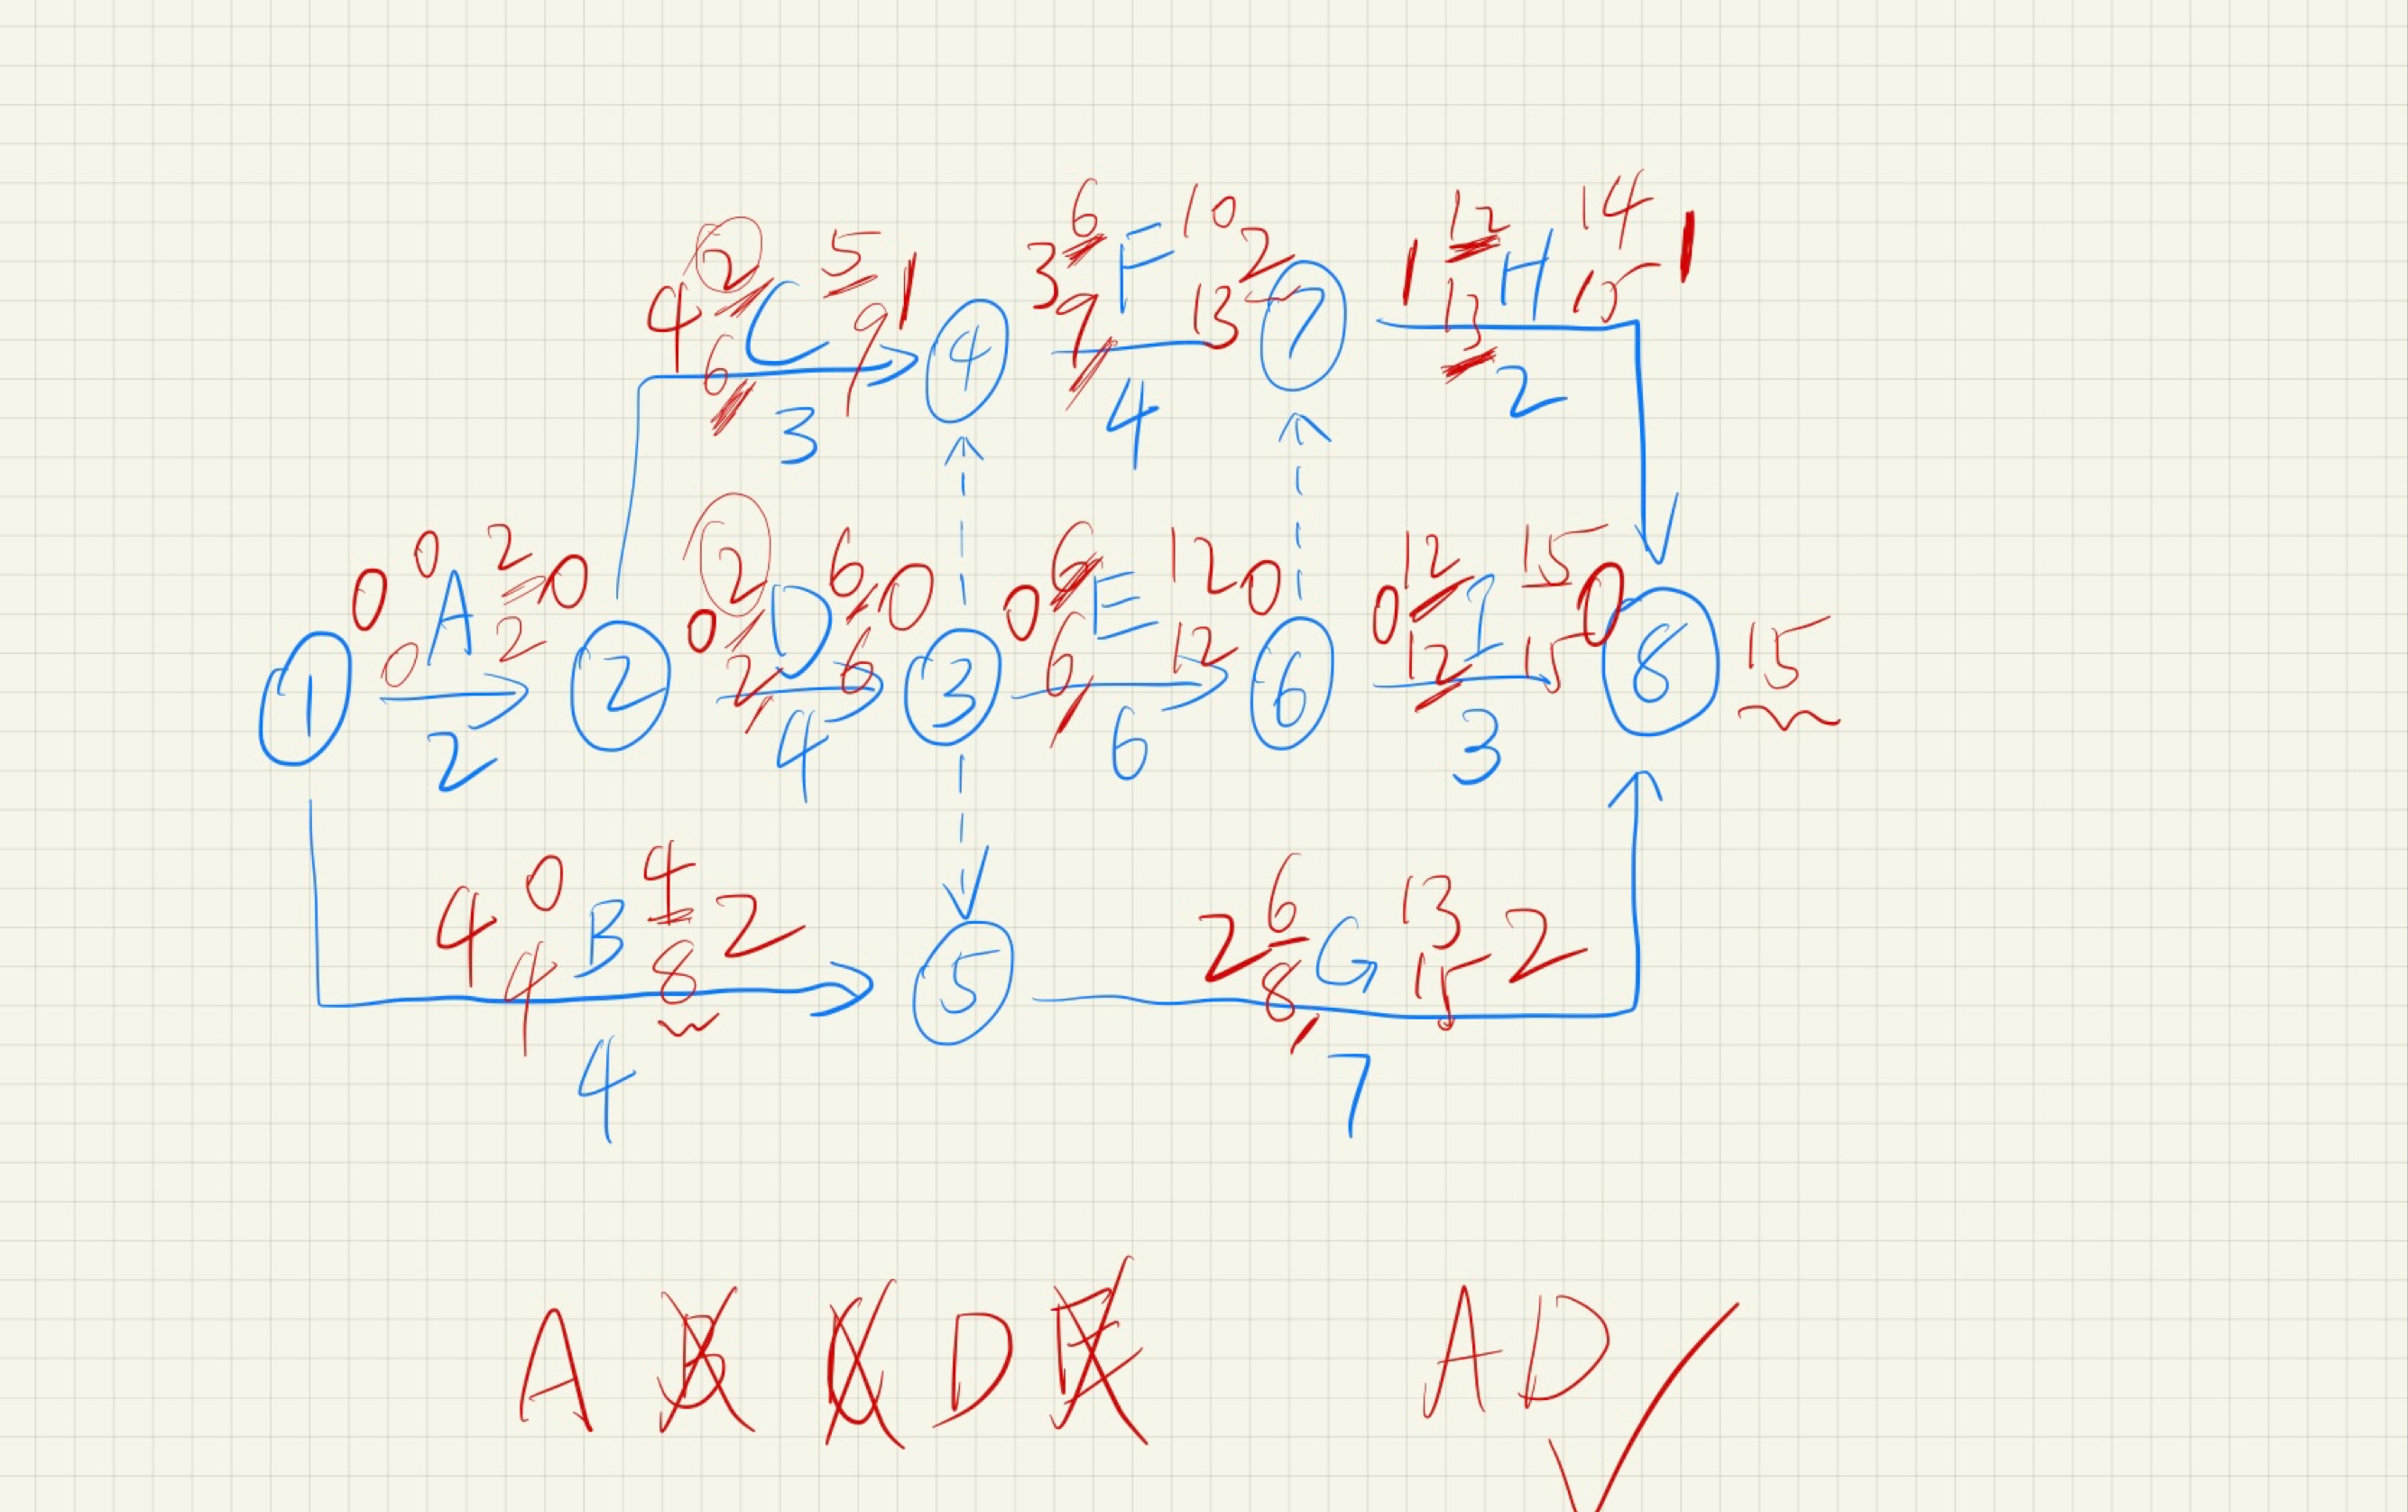 6 10 12 14
2 5 3 F 2 1 H 1
4 C 9 1 4 9 13 7 13 15
6 3 4 2
0 2 2 6 6 12 12 15
0 A 0 0 D 0 0 E 0 0 I 0
1 0 2 2 2 6 3 6 12 6 12 15 8 15
2 4 6 3
0 4 6 13
4 B 2 2 G 2
4 8 5 8 15
4 7
A B C D E A D